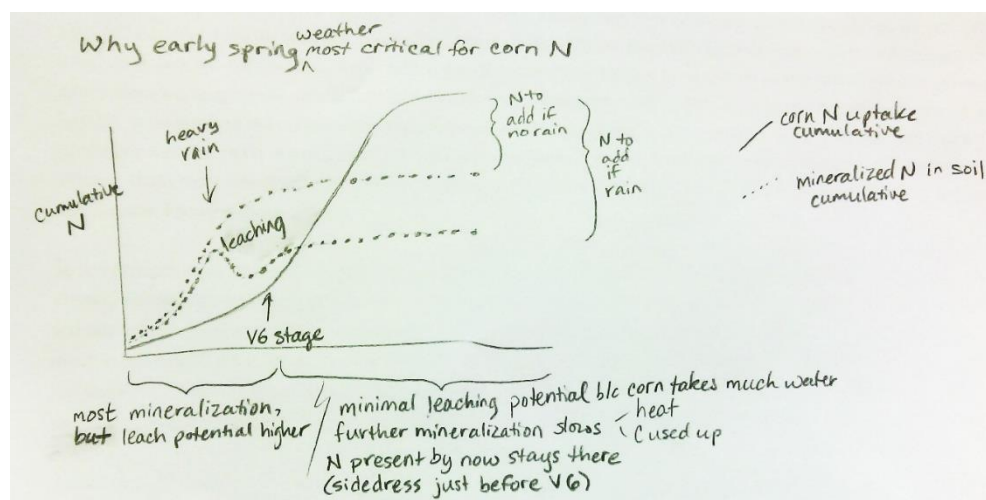 Why early spring weather most critical for corn N
heavy
rain
N to
add if
no rain
N to
add
if
rain
corn N uptake
cumulative
mineralized N in soil
cumulative
cumulative
N
leaching
V6 stage
most mineralization,
but leach potential higher
minimal leaching potential b/c corn takes much water
further mineralization slows
heat
C used up
N present by now stays there
(sidedress just before V6)